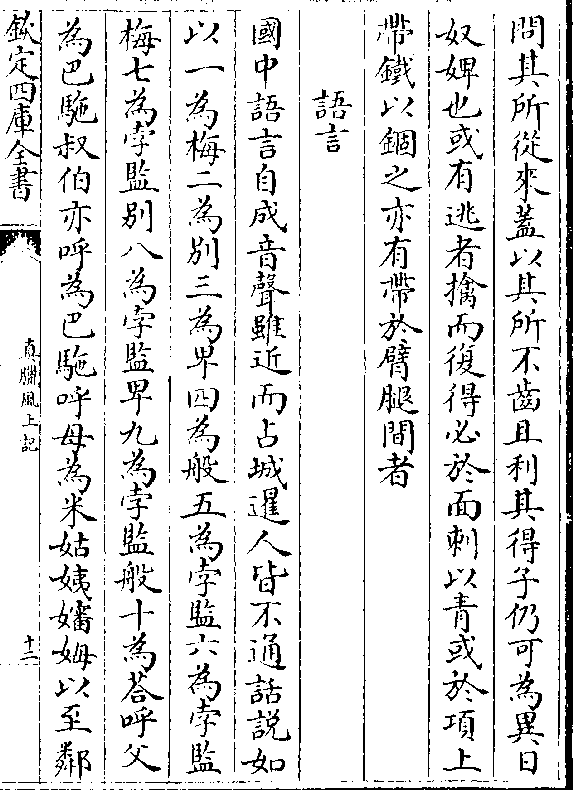 問其所從來蓋以其所不齒且利其得子仍可為異日
奴婢也或有逃者擒而復得必於面刺以青或於項上
帶鐵以錮之亦有帶於臂腿間者
語言
國中語言自成音聲雖近而占城暹人皆不通話說如
以一為梅二為別三為卑四為般五為孛監六為孛監
梅七為孛監別八為孛監卑九為孛監般十為荅呼父
為巴駞叔伯亦呼為巴駞呼母為米姑姨嬸姆以至鄰
欽定四庫全書
真臘風土記
十二